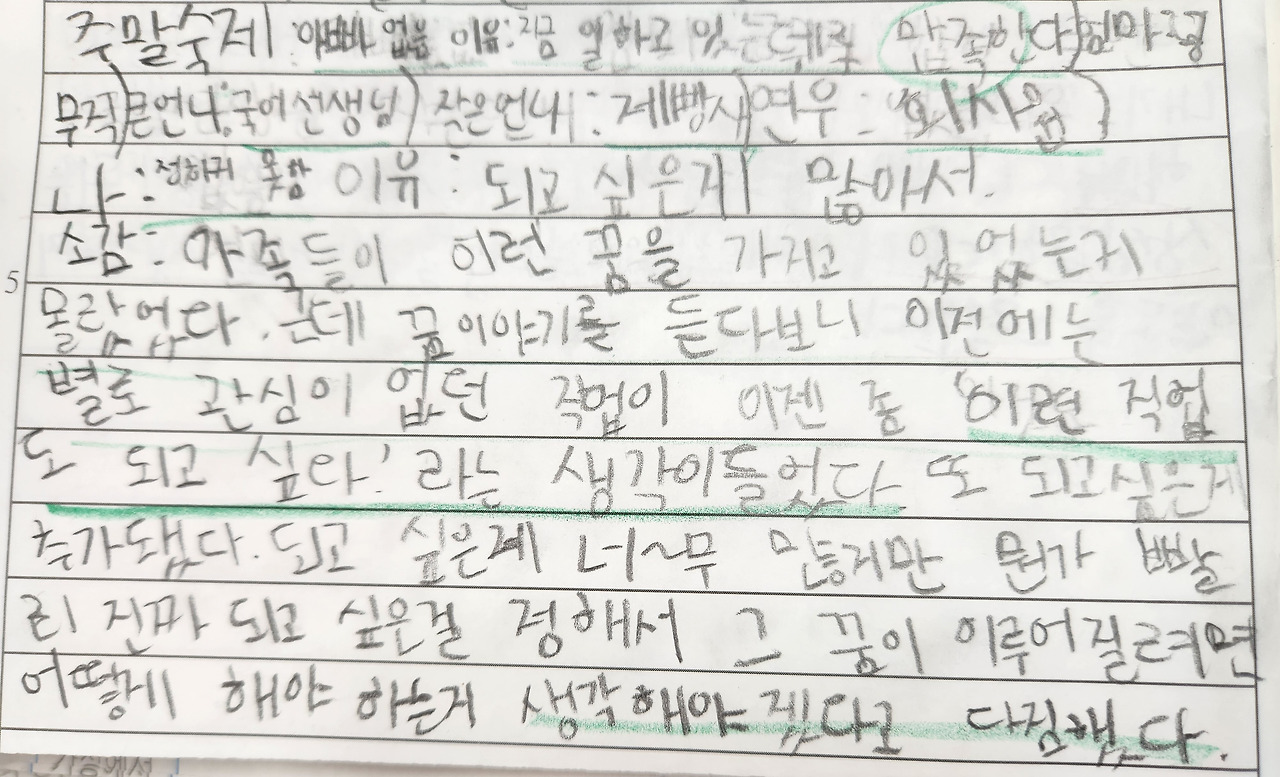 주말숙제 아빠 없음 이유: 지금 일하고 있는데로 만족한다) 엄마 꿈
무직) 큰언니: 국어선생님) 작은언니: 제빵사) 연우: 회사원)
나: 정하귀 못함 이유: 되고 싶은게 많아서.
소감: 가족들이 이런 꿈을 가지고 있었는귀
5
몰랐었다. 근데 꿈이야기를 듣다보니 이전에는
별로 관심이 없던 직업이 이젠 좀 '이런 직업
도 되고 싶다.' 라는 생각이들었다 또 되고싶은게
추가됐다. 되고 싶은게 너~무 많긴만 뭔가 빨
리 진짜 되고 싶은걸 정해서 그 꿈이 이루어질르려면
어떻게 해야 하는게 생각해야 겠다고 다짐했다.